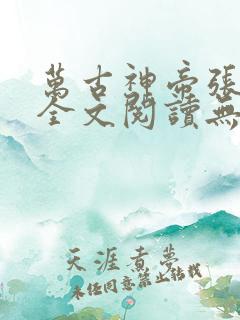 萬古神帝張
全文閱讀無
天涯煮夢
未经同意禁止转载